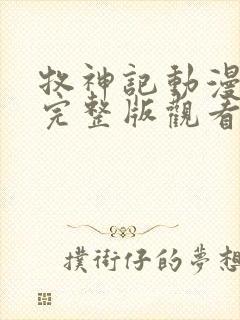 牧神記動漫
完整版觀看
撲街仔的夢想